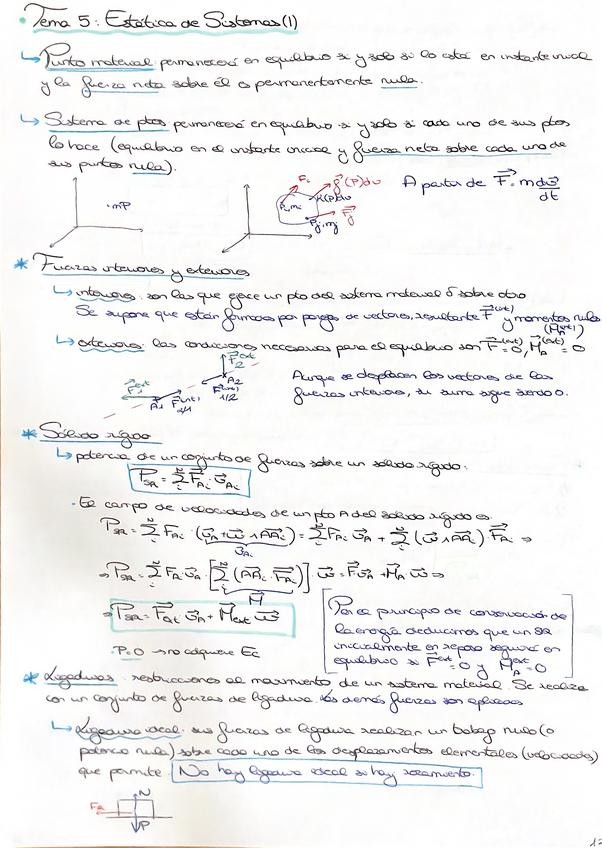 • Tema 5: Estática de Sistemas (1)
↳ Punto material permanecerá en equilibrio si y solo si lo está en instante inicial
y la fuerza neta sobre él es permanentemente nula.
↳ Sistema de ptos permanecerá en equilibrio si y solo si cada uno de sus ptos
lo hace (equilibrio en el instante inicial y fuerza neta sobre cada uno de
sus puntos nula).
·mP
F⃗i
P_i, m_i
g⃗(P)dv
P_j, m_j
F⃗j
A partir de F⃗ = m dv⃗/dt
* Fuerzas interiores y exteriores
↳ interiores: son las que ejerce un pto del sistema material ó sobre otro
Se supone que están formados por parejas de vectores, resultante F⃗^(int) y momentos nulos (M⃗_A^(int))
↳ exteriores: las condiciones necesarias para el equilibrio son F⃗^(ext) = 0, M⃗_A^(ext) = 0
F⃗_2^ext
F⃗_1^ext
A_1
F⃗^(int) 2/1
A_2
F⃗^(int) 1/2
Aunque se desplacen los vectores de las
fuerzas interiores, su suma sigue siendo 0.
* Sólido rígido
↳ potencia de un conjunto de fuerzas sobre un sólido rígido:
P_SR = Σ_i^N F⃗_Ai · v⃗_Ai
· El campo de velocidades de un pto A del sólido rígido es:
P_SR = Σ_i^N F_Ai · (v⃗_A + ω⃗ ∧ AA⃗_i) = Σ_i^N F_Ai v⃗_A + Σ_i^N (ω⃗ ∧ AA⃗_i) · F⃗_Ai ⇒
v⃗_Ai
⇒ P_SR = Σ_i^N F_Ai v⃗_A · [Σ_i^N (AA⃗_i · F⃗_Ai)] ω⃗ = F⃗ v⃗_A + M⃗_A ω⃗ ⇒
M⃗
⇒ P_SR = F⃗_ext v⃗_A + M⃗_ext ω⃗
P=0 → no adquiere Ec
Por el principio de conservación de
la energía deducimos que un SR
inicialmente en reposo seguirá en
equilibrio si F⃗^ext = 0 y M⃗_A^ext = 0
* Ligaduras: restricciones al movimiento de un sistema material. Se realiza
con un conjunto de fuerzas de ligadura. Las demás fuerzas son aplicadas
↳ Ligadura ideal: sus fuerzas de ligadura realizan un trabajo nulo (o
potencia nula) sobre cada uno de los desplazamientos elementales (velocidades)
que permite. No hay ligadura ideal si hay rozamiento.
N
P